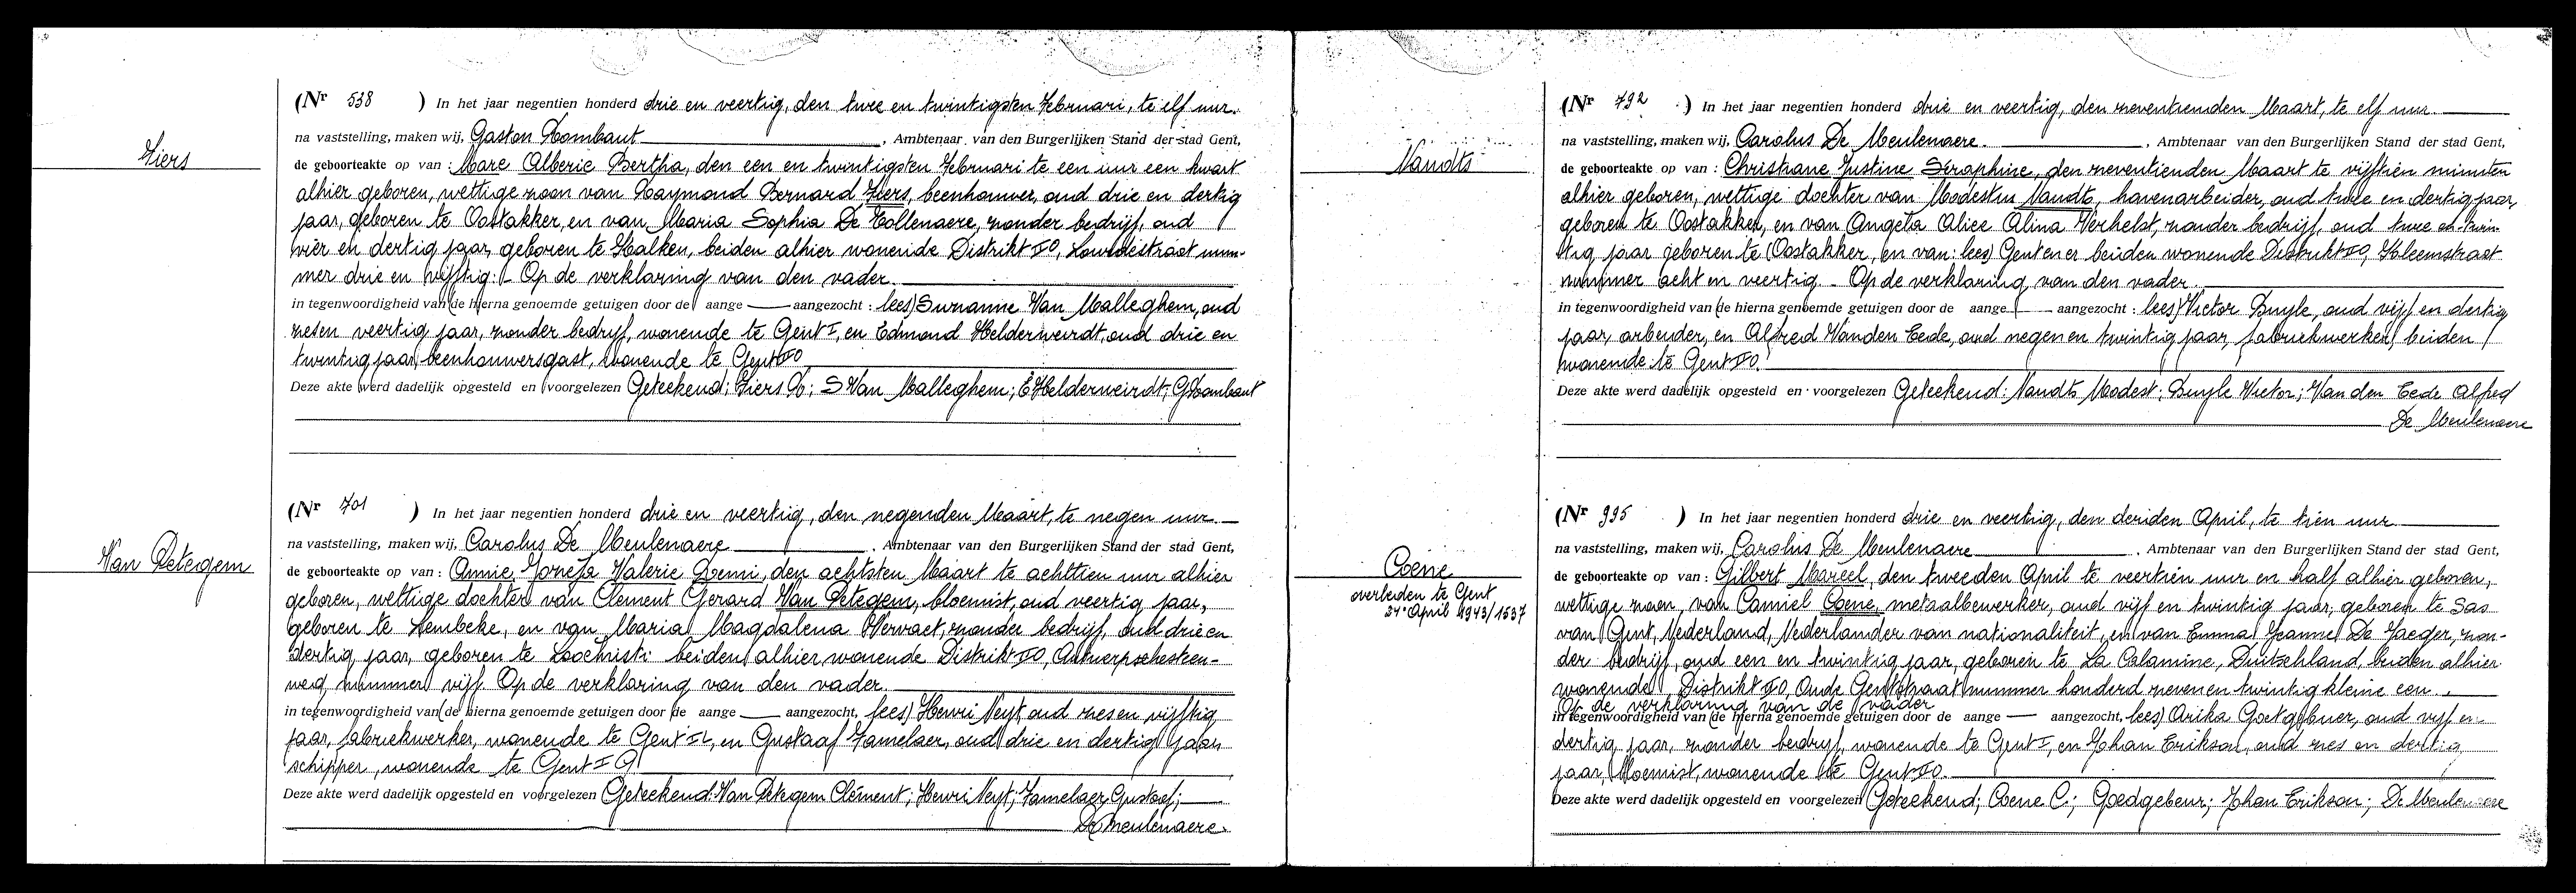 Hiers
(Nr 538 ) In het jaar negentien honderd drie en veertig, den twee en twintigsten Februari, te elf uur.
na vaststelling, maken wij, Gaston Rombaut, Ambtenaar van den Burgerlijken Stand der stad Gent,
de geboorteakte op van : Marc Alberic Bertha, den een en twintigsten Februari te een uur een kwart
alhier geboren, wettige zoon van Raymond Bernard Hiers, beenhouwer, oud drie en dertig
jaar, geboren te Oostakker, en van Maria Sophia De Tollenaere, zonder bedrijf, oud
vier en dertig jaar, geboren te Kalken, beiden alhier wonende Distrikt IO, Lourdesstraat num-
mer drie en vijftig. - Op de verklaring van den vader.
in tegenwoordigheid van (de hierna genoemde getuigen door de aange — aangezocht : lees) Suzanne Van Malleghem, oud
zes en veertig jaar, zonder bedrijf, wonende te Gent I, en Edmond Helderweirdt, oud drie en
twintig jaar, beenhouwersgast, wonende te Gent IO
Deze akte werd dadelijk opgesteld en voorgelezen Geteekend: Hiers R; S Van Malleghem; E Helderweirdt; G Rombaut
Van Petegem
(Nr 701 ) In het jaar negentien honderd drie en veertig, den negenden Maart, te negen uur
na vaststelling, maken wij, Carolus De Meulenaere, Ambtenaar van den Burgerlijken Stand der stad Gent,
de geboorteakte op van : Annie Jozefa Valerie Remi, den achtsten Maart te achttien uur alhier
geboren, wettige dochter van Clement Gerard Van Petegem, bloemist, oud veertig jaar,
geboren te Lembeke, en van Maria Magdalena Vervaet, zonder bedrijf, oud drie en
dertig jaar, geboren te Loochristi beiden alhier wonende Distrikt IO, Antwerpschesteen-
weg nummer vijf. Op de verklaring van den vader.
in tegenwoordigheid van (de hierna genoemde getuigen door de aange — aangezocht, lees) Henri Neyt, oud zes en vijftig
jaar, fabriekwerker, wonende te Gent, en Gustaaf Famelaer, oud drie en dertig jaar
schipper, wonende te Gent
Deze akte werd dadelijk opgesteld en voorgelezen Geteekend: Van Petegem Clément; Henri Neyt; Famelaer Gustaaf;
De Meulenaere.
Naudts
(Nr 792 ) In het jaar negentien honderd drie en veertig, den zeventienden Maart, te elf uur
na vaststelling, maken wij, Carolus De Meulenaere, Ambtenaar van den Burgerlijken Stand der stad Gent,
de geboorteakte op van : Christiane Justine Seraphine, den zeventienden Maart te vijftien minuten
alhier geboren, wettige dochter van Modestus Naudts, havenarbeider, oud twee en dertig jaar,
geboren te Oostakker, en van Angela Alice Alina Verhelst, zonder bedrijf, oud twee en twin-
tig jaar geboren te (Oostakker, en van: lees) Gent en er beiden wonende Distrikt IO, straat
nummer acht en veertig. - Op de verklaring van den vader.
in tegenwoordigheid van (de hierna genoemde getuigen door de aange — aangezocht : lees) Victor Buyle, oud vijf en dertig
jaar, arbeider, en Alfred Vanden Eede, oud negen en twintig jaar, fabriekwerker, beiden
wonende te Gent IO.
Deze akte werd dadelijk opgesteld en voorgelezen Geteekend: Naudts Modest; Buyle Victor; Van den Eede Alfred
De Meulenaere
Coene
overleden te Gent
24 April 1943/1537
(Nr 995 ) In het jaar negentien honderd drie en veertig, den derden April, te tien uur
na vaststelling, maken wij, Carolus De Meulenaere, Ambtenaar van den Burgerlijken Stand der stad Gent,
de geboorteakte op van : Gilbert Marcel, den tweeden April te veertien uur en half alhier geboren,
wettige zoon, van Camiel Coene, metaalbewerker, oud vijf en twintig jaar, geboren te Sas
van Gent, Nederland, Nederlander van nationaliteit, en van Emma Jeanne De Jaeger, zon-
der bedrijf, oud een en twintig jaar, geboren te La Calamine, Duitschland, beiden alhier
wonende, Distrikt IO, Oude Gentstraat nummer honderd zeven en twintig kleine een.
Op de verklaring van de vader
in tegenwoordigheid van (de hierna genoemde getuigen door de aange — aangezocht, lees) Arika Goetgebuer, oud vijf en
dertig jaar, zonder bedrijf, wonende te Gent I, en Johan Erikson, oud zes en dertig
jaar, bloemist, wonende te Gent IO.
Deze akte werd dadelijk opgesteld en voorgelezen Geteekend; Coene C.; Goedgebeur; Johan Erikson; De Meulenaere